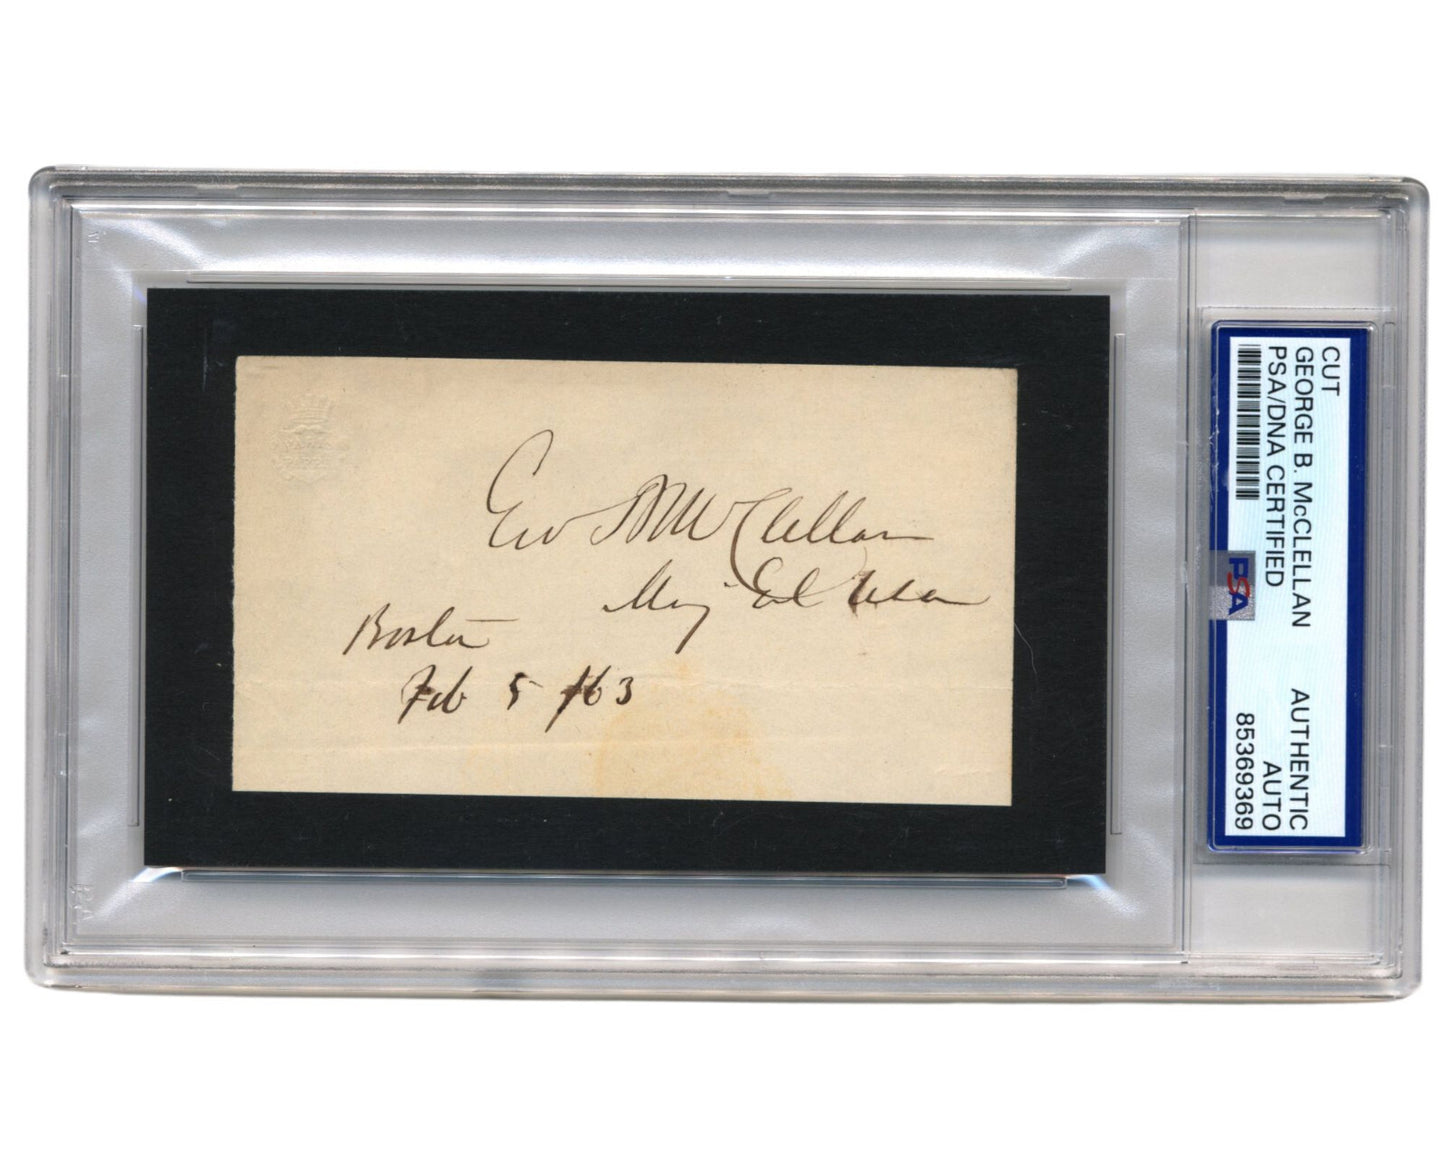 Geo B McClellan
Maj Genl USA
Boston
Feb 5 /63
CUT
GEORGE B. McCLELLAN
PSA/DNA CERTIFIED
AUTHENTIC
AUTO
85369369
PSA